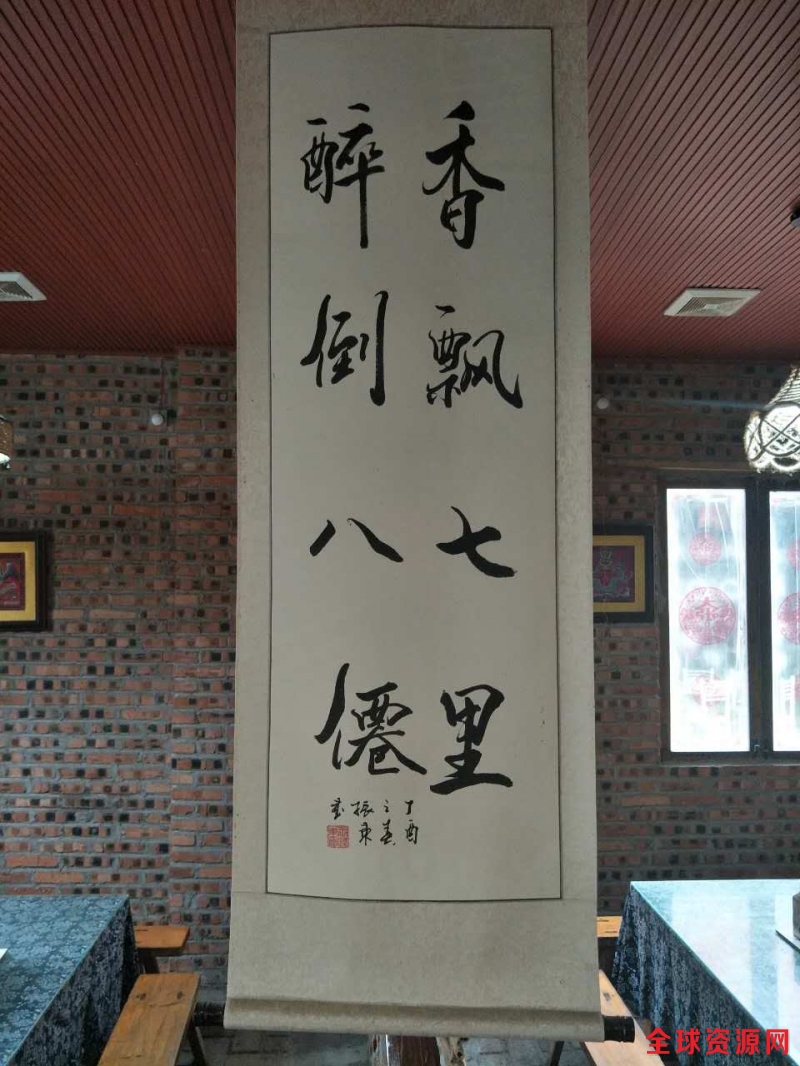 香飘七里
醉倒八僊
丁酉
之春
振東
书
全球资源网